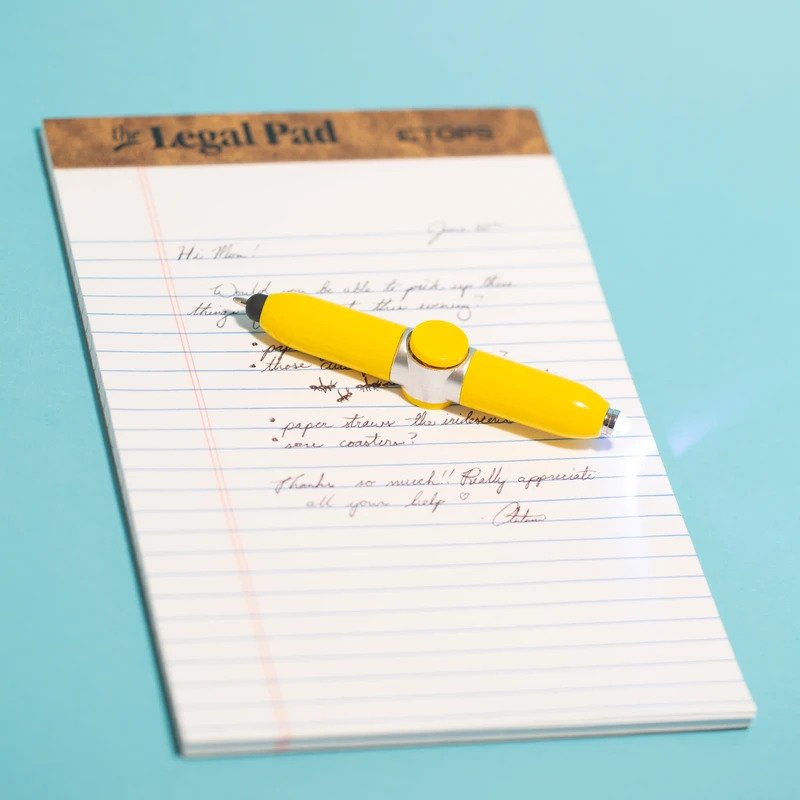 the Legal Pad TOPS
June
Hi Mom!
Would you be able to pick up these
things this evening?
• 
• those ?
• paper straws the iridescent
• some coasters?
Thanks so much!! Really appreciate
all your help ♡